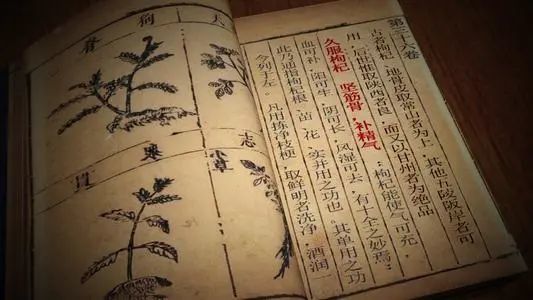 第三十六卷
古者枸杞、地骨皮取常山者为上，其他五陵阪岸者可
用，后世惟取陕西者良，而又以甘州者为绝品
久服枸杞 坚筋骨，补精气；枸杞能使气可充，
血可补，阳可生，阴可长，风湿可去，有十全之妙焉；
此乃通指枸杞根、苗、花、实并用之功也。其单用之功
今列于左。凡用拣净枝梗，取鲜明者洗净，酒润
天
狗脊
志
小草